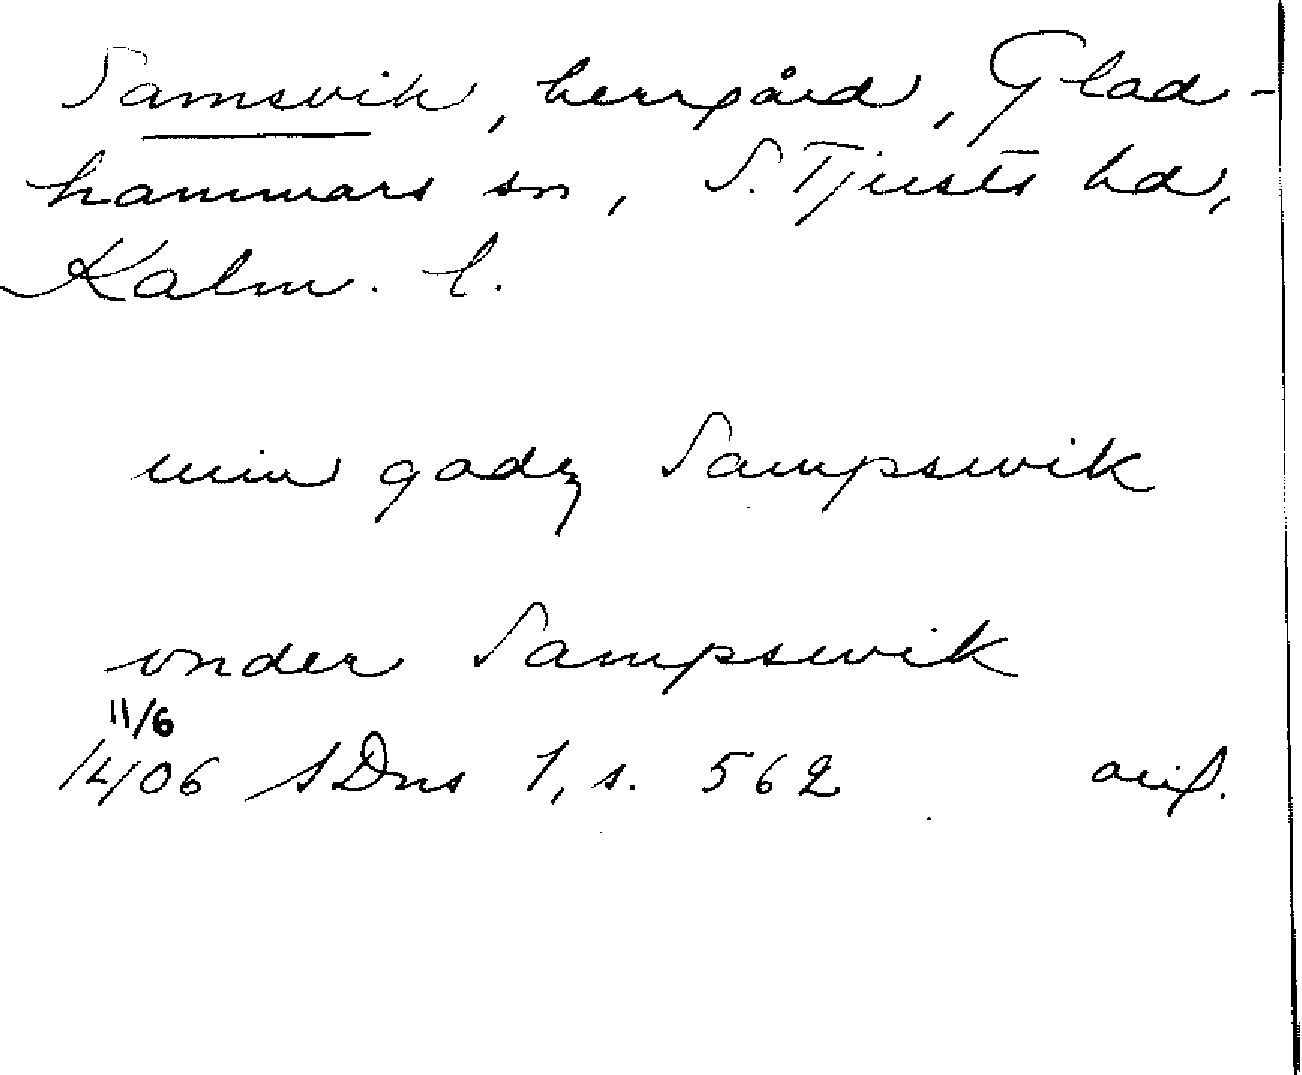 Samsvik, herrgård, Glad-
hammars sn, S. Tjusts hd,
Kalm. l.
min godz Sampswik
vnder Sampswik
11/6
1406 SDns 1, s. 562 orig.